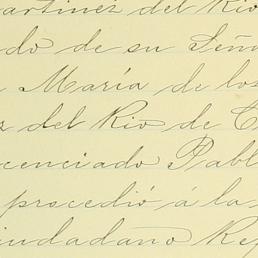 artinez del Rio
do de su Seño
María de los
z del Rio de C
cenciado Pabl
procedió á la
iudadano Rep